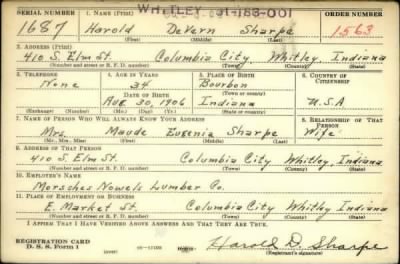 WHITLEY 91-183-001
SERIAL NUMBER 1. NAME (Print) ORDER NUMBER
1687 Harold DeVern Sharpe 1563
(First) (Middle) (Last)
2. ADDRESS (Print)
410 S. Elm St. Columbia City Whitley, Indiana
(Number and street or R. F. D. number) (Town) (County) (State)
3. TELEPHONE 4. AGE IN YEARS 5. PLACE OF BIRTH 6. COUNTRY OF CITIZENSHIP
None 34 Bourbon
DATE OF BIRTH (Town or county)
Aug 30, 1906 Indiana U.S.A
(Exchange) (Number) (Mo.) (Day) (Yr.) (State or country)
7. NAME OF PERSON WHO WILL ALWAYS KNOW YOUR ADDRESS 8. RELATIONSHIP OF THAT PERSON
Mrs. Maude Eugenia Sharpe Wife
(Mr., Mrs., Miss) (First) (Middle) (Last)
9. ADDRESS OF THAT PERSON
410 S. Elm St. Columbia City Whitley, Indiana
(Number and street or R. F. D. number) (Town) (County) (State)
10. EMPLOYER'S NAME
Morsches Nowels Lumber Co.
11. PLACE OF EMPLOYMENT OR BUSINESS
E. Market St. Columbia City Whitley Indiana
(Number and street or R. F. D. number) (Town) (County) (State)
I AFFIRM THAT I HAVE VERIFIED ABOVE ANSWERS AND THAT THEY ARE TRUE.
REGISTRATION CARD
D. S. S. Form 1 Harold D. Sharpe
(Registrant's signature)